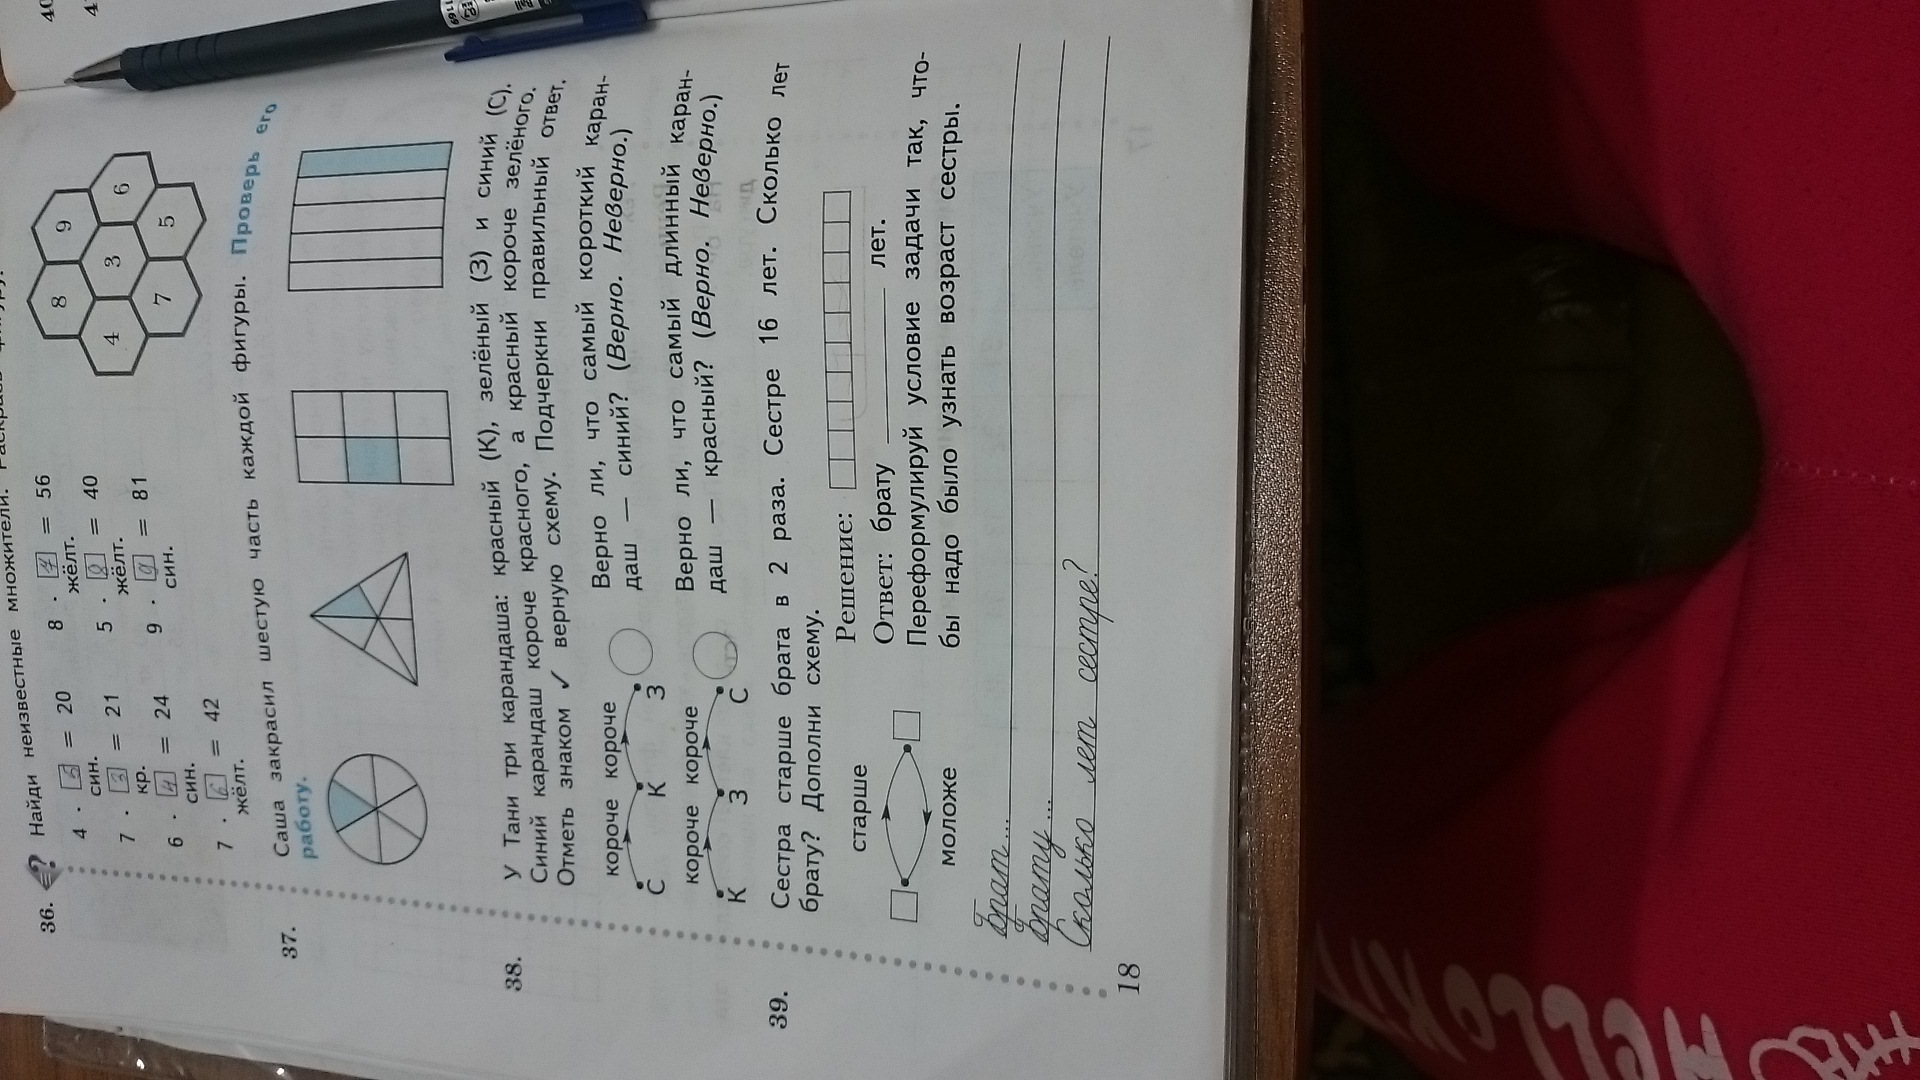 36. Найди неизвестные множители.
4 · 5 = 20 8 · 7 = 56
син. жёлт.
7 · 3 = 21 5 · 8 = 40
кр. жёлт.
6 · 4 = 24 9 · 9 = 81
син. син.
7 · 6 = 42
жёлт.
8 9
4 3 6
7 5
37. Саша закрасил шестую часть каждой фигуры. Проверь его
работу.
38. У Тани три карандаша: красный (К), зелёный (З) и синий (С).
Синий карандаш короче красного, а красный короче зелёного.
Отметь знаком ✓ верную схему. Подчеркни правильный ответ.
короче короче
С К З
Верно ли, что самый короткий каран-
даш — синий? (Верно. Неверно.)
короче короче
К З С
Верно ли, что самый длинный каран-
даш — красный? (Верно. Неверно.)
39. Сестра старше брата в 2 раза. Сестре 16 лет. Сколько лет
брату? Дополни схему.
старше
моложе
Решение:
Ответ: брату ________ лет.
Переформулируй условие задачи так, что-
бы надо было узнать возраст сестры.
Брат...
Брату...
Сколько лет сестре?
18